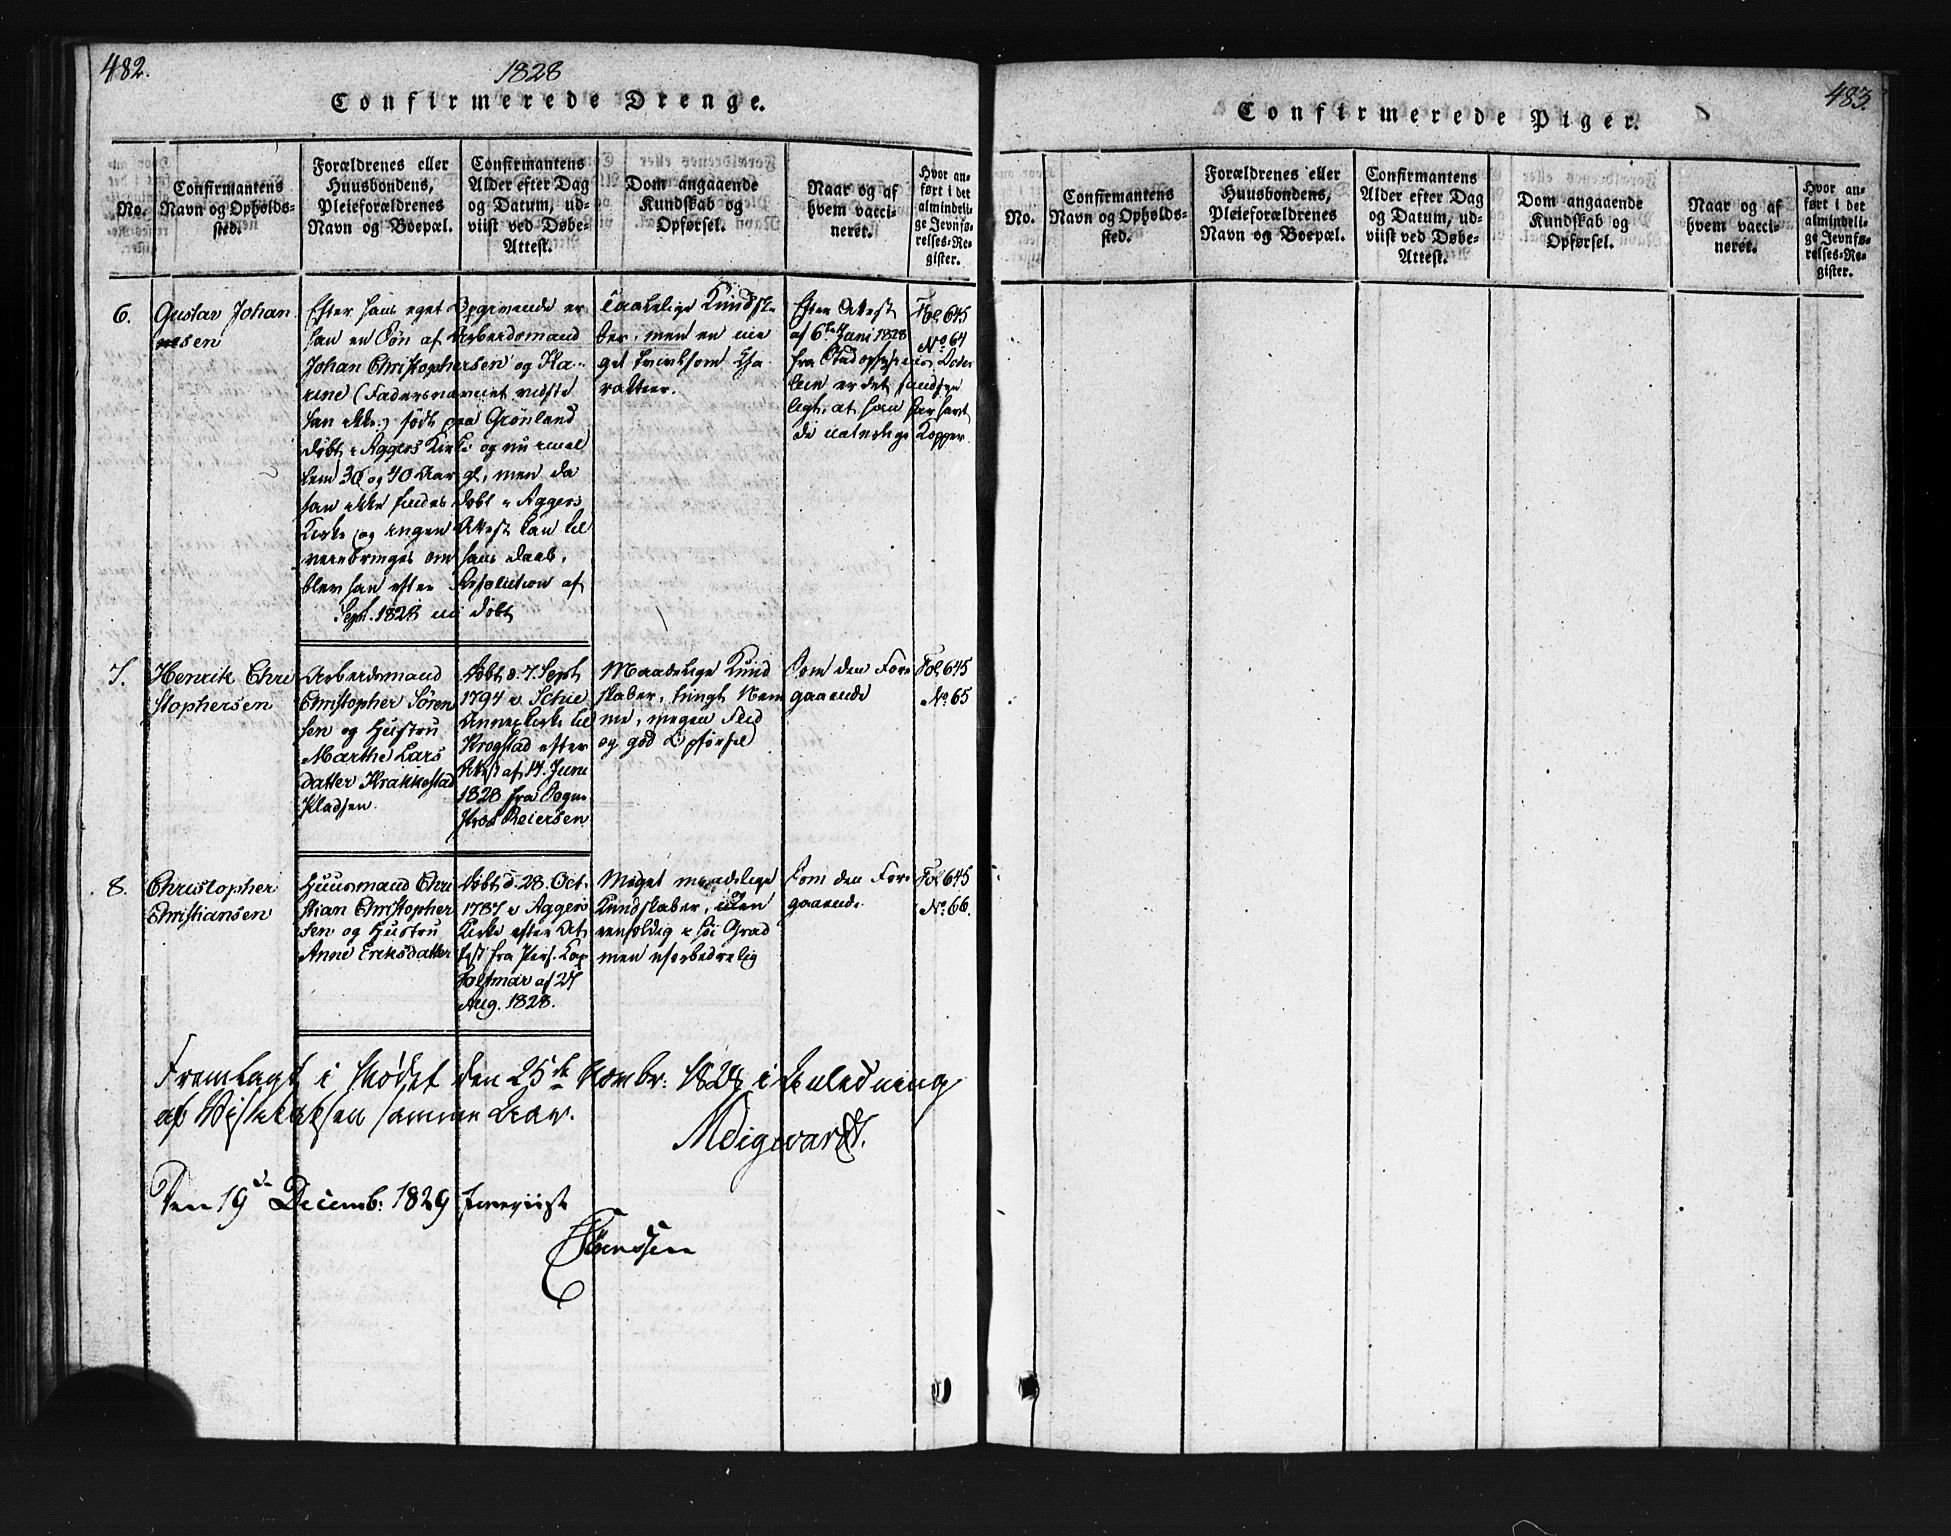 482.
1828
Confirmerede Drenge.
No.
Confirmantens
Navn og Opholds-
sted.
Forældrenes eller
Huusbondens,
Pleieforældrenes
Navn og Boepæl.
Confirmantens
Alder efter Dag
og Datum, ud-
viist ved Døbe-
Attest.
Dom angaaende
Kundskab og
Opførsel.
Naar og af
hvem vacci-
neret.
Hvor an-
ført i det
almindeli-
ge Jevnfø-
relses-Re-
gister.
6.
Gustav Johan
nesen
Efter hans eget Opgivende er
han en Søn af Arbeidsmand
Johan Christophersen og Ka-
rine (Fadersnavnet vidste
han ikke) født paa Grønland
døbt i Aggers Kirke og nu imel
lem 36 og 40 Aar gl, men da
han ikke findes døbt i Aggers
Kirke og ingen Attest kan til
veiebringes om hans Daab,
blev han efter Resolution af
Sept. 1828 nu døbt
Taalelige Kundska
ber, men en me
get tvivlsom Cha
rakteer.
Efter Attest
af 6te Juni 1828
fra Stadsphysicus
er det sandsyn
ligt, at han har havt
de naturlige Kopper.
Fol 645
No 64
7.
Henrik Chri
stophersen
Arbeidsmand
Christopher Søren
sen og Hustru
Marthe Lars
datter Krakkestad
Pladsen
Døbt d. 7. Sept
1794 i Schie
Annexkirke til
Krogstad efter
Attest af 14. Juni
1828 fra Sogne
Præst Reiersen
Maadelige Kund
skaber, tungt Nem
me, megen Flid
og god Opførsel
Som den Fore
gaaende
Fol 645
No 65
8.
Christopher
Christiansen
Huusmand Chri
stian Christopher
sen og Hustru
Anne Eriksdatter
Døbt d. 28. Oct.
1787 i Aggers
Kirke efter At
test fra Pers. Kap
Holtmar af 27
Aug. 1828.
Meget maadelige
Kundskaber, uden
eenfoldig i høi Grad
men uforbederlig
Som den Fore
gaaende
Fol 645
No. 66.
Fremlagt i Mødet den 25de Novbr: 1828 i Anledning
af Visitatsen samme Aar.
Den 19de Decemb: 1829 foreviist
483.
Confirmerede Piger.
No.
Confirmantens
Navn og Opholds-
sted.
Forældrenes eller
Huusbondens,
Pleieforældrenes
Navn og Boepæl.
Confirmantens
Alder efter Dag
og Datum, ud-
viist ved Døbe-
Attest.
Dom angaaende
Kundskab og
Opførsel.
Naar og af
hvem vacci-
neret.
Hvor an-
ført i det
almindeli-
ge Jevnfø-
relses-Re-
gister.